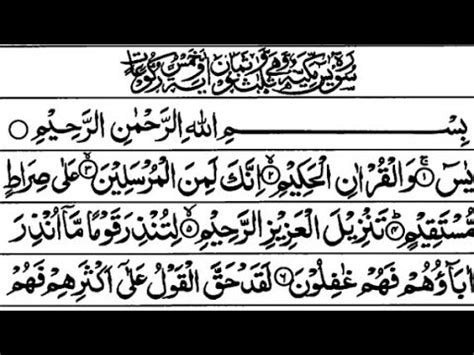 سورة يس مكية وهي ثلث وثمانون اية وخمس ركوعات
بِسْمِ اللهِ الرَّحْمٰنِ الرَّحِيْمِ ○
يٰسٓ ۚ﴿۱﴾ وَالْقُرْاٰنِ الْحَكِيْمِ ۙ﴿۲﴾ اِنَّكَ لَمِنَ الْمُرْسَلِيْنَ ۙ﴿۳﴾ عَلٰى صِرَاطٍ
مُّسْتَقِيْمٍ ؕ﴿۴﴾ تَنْزِيْلَ الْعَزِيْزِ الرَّحِيْمِ ۙ﴿۵﴾ لِتُنْذِرَ قَوْمًا مَّاۤ اُنْذِرَ
اٰبَآؤُهُمْ فَهُمْ غٰفِلُوْنَ ﴿۶﴾ لَقَدْ حَقَّ الْقَوْلُ عَلٰٓى اَكْثَرِهِمْ فَهُمْ